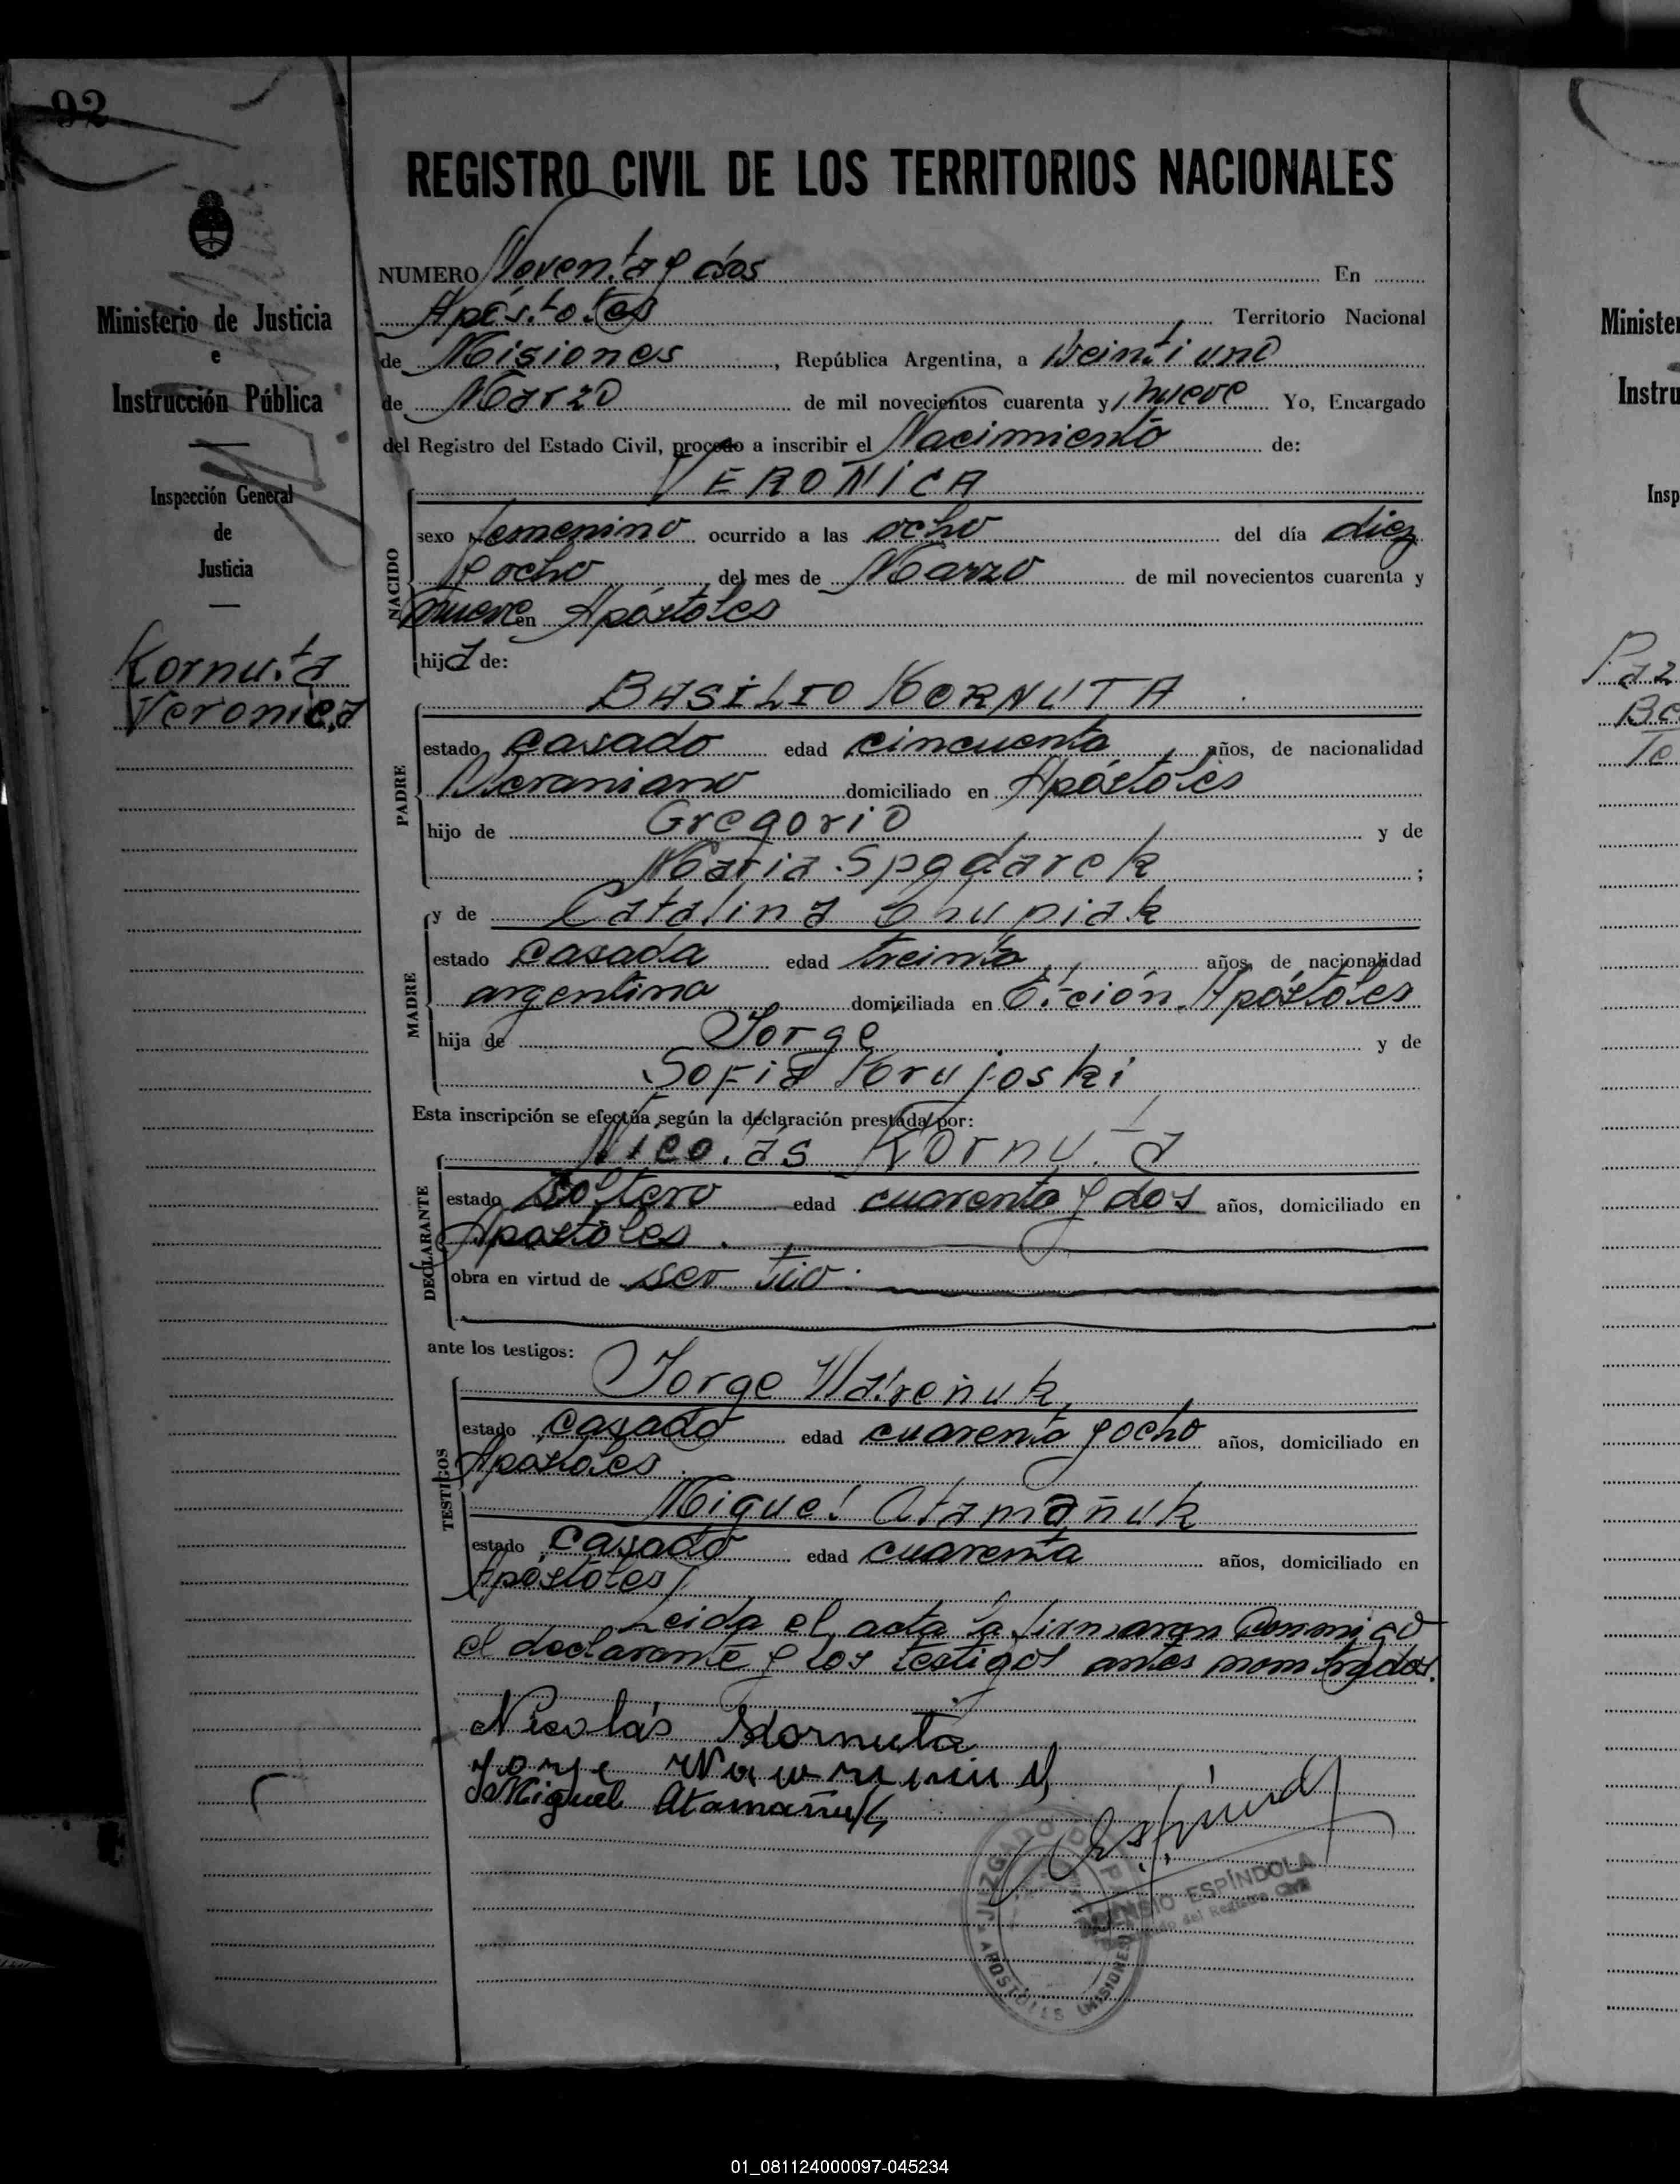 92
REGISTRO CIVIL DE LOS TERRITORIOS NACIONALES
Ministerio de Justicia
e
Instrucción Pública
Inspección General
de
Justicia
Kornuta
Veronica
NUMERO Noventa y dos En
Apóstoles Territorio Nacional
de Misiones, República Argentina, a Veintiuno
de Marzo de mil novecientos cuarenta y nueve Yo, Encargado
del Registro del Estado Civil, procedo a inscribir el Nacimiento de:
VERONICA
NACIDO
sexo femenino ocurrido a las ocho del día diez
y ocho del mes de Marzo de mil novecientos cuarenta y
nueve en Apóstoles
hija de:
BASILIO KORNUTA
PADRE
estado casado edad cincuenta años, de nacionalidad
Ucraniano domiciliado en Apóstoles
hijo de Gregorio y de
Maria ;
y de Catalina Chupiak
MADRE
estado casada edad treinta años, de nacionalidad
argentina domiciliada en Apóstoles
hija de Jorge y de
Sofia
Esta inscripción se efectúa según la declaración prestada por:
Nicolás Kornuta
DECLARANTE
estado soltero edad cuarenta y dos años, domiciliado en
Apóstoles.
obra en virtud de ser tio.
ante los testigos:
Jorge
TESTIGOS
estado casado edad cuarenta y ocho años, domiciliado en
Apóstoles
Miguel Atamañuk
estado casado edad cuarenta años, domiciliado en
Apóstoles
Leida el acta la firmaron conmigo
el declarante y los testigos antes nombrados.
Nicolás Kornuta
Jorge
Miguel Atamañuk
JUZGADO DE PAZ
APOSTOLES (MISIONES)
ESPÍNDOLA
del Registro Civil
Minister
Instru
Insp
01_081124000097-045234